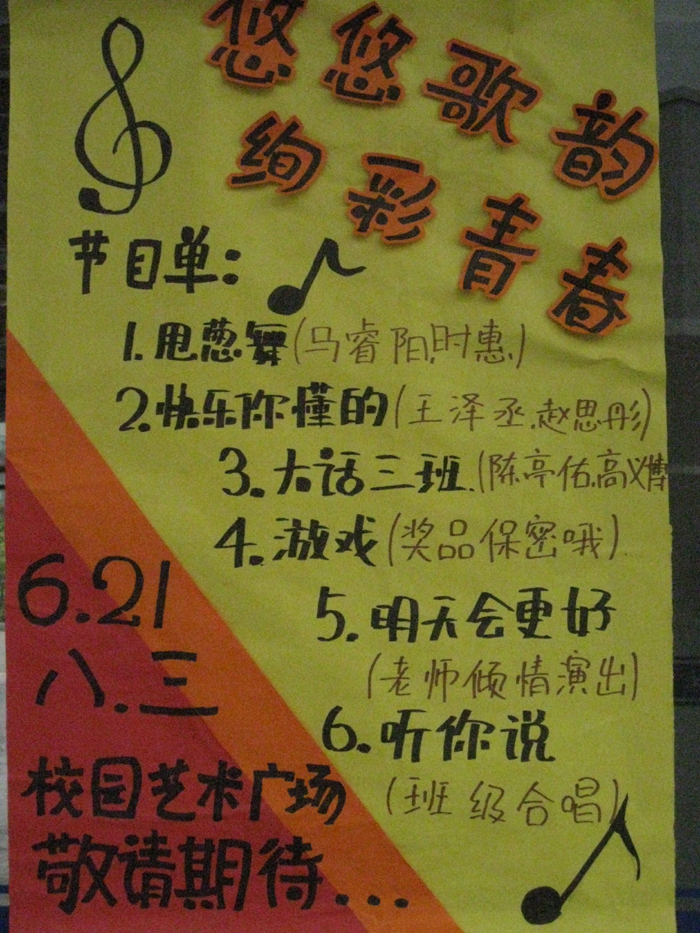 悠悠歌韵
绚彩青春
节目单:
1.甩葱舞(马睿阳.时惠)
2.快乐你懂的(王泽丞.赵思彤)
3.大话三班.(陈亭佑.高义博
4.游戏(奖品保密哦)
5.明天会更好
(老师倾情演出)
6.听你说
(班级合唱)
6.21
八.三
校园艺术广场
敬请期待...